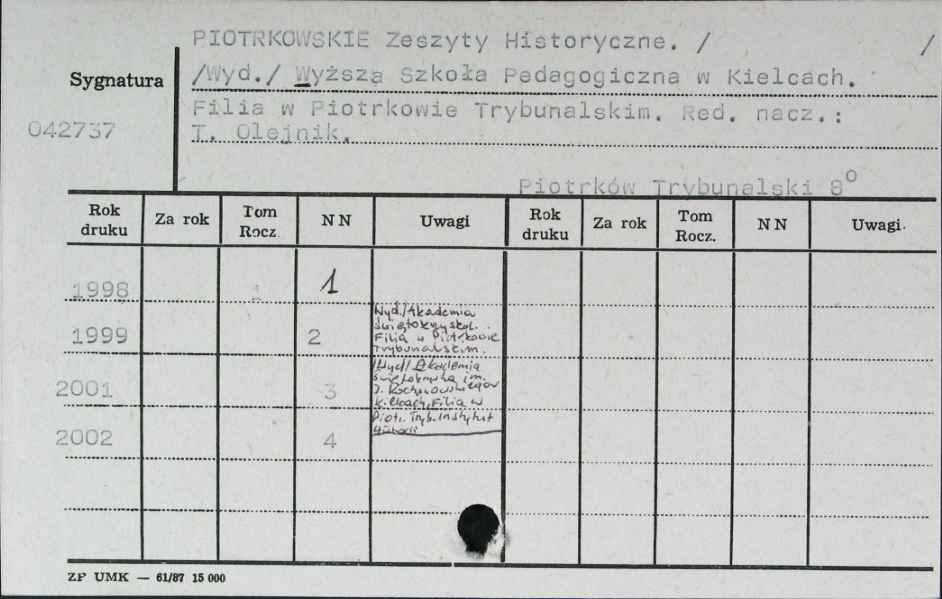 PIOTRKOWSKIE Zeszyty Historyczne. / /
Sygnatura
/Wyd./ Wyższa Szkoła Pedagogiczna w Kielcach.
Filia w Piotrkowie Trybunalskim. Red. nacz.:
042737
T. Olejnik.
Piotrków Trybunalski 8º
Rok druku Za rok Tom Rocz. N N Uwagi Rok druku Za rok Tom Rocz. N N Uwagi.
1998 1
1999 2
Wyd./Akademia
Świętokrzyska.
Filia w Piotrkowie
Trybunalskim.
2001 3
/Wyd/ Akademia
Świętokrzyska im.
J. Kochanowskiego w
Kielcach, Filia w
2002 4
Piotr. Tryb. Instytut
Historii
ZP UMK — 61/87 15 000